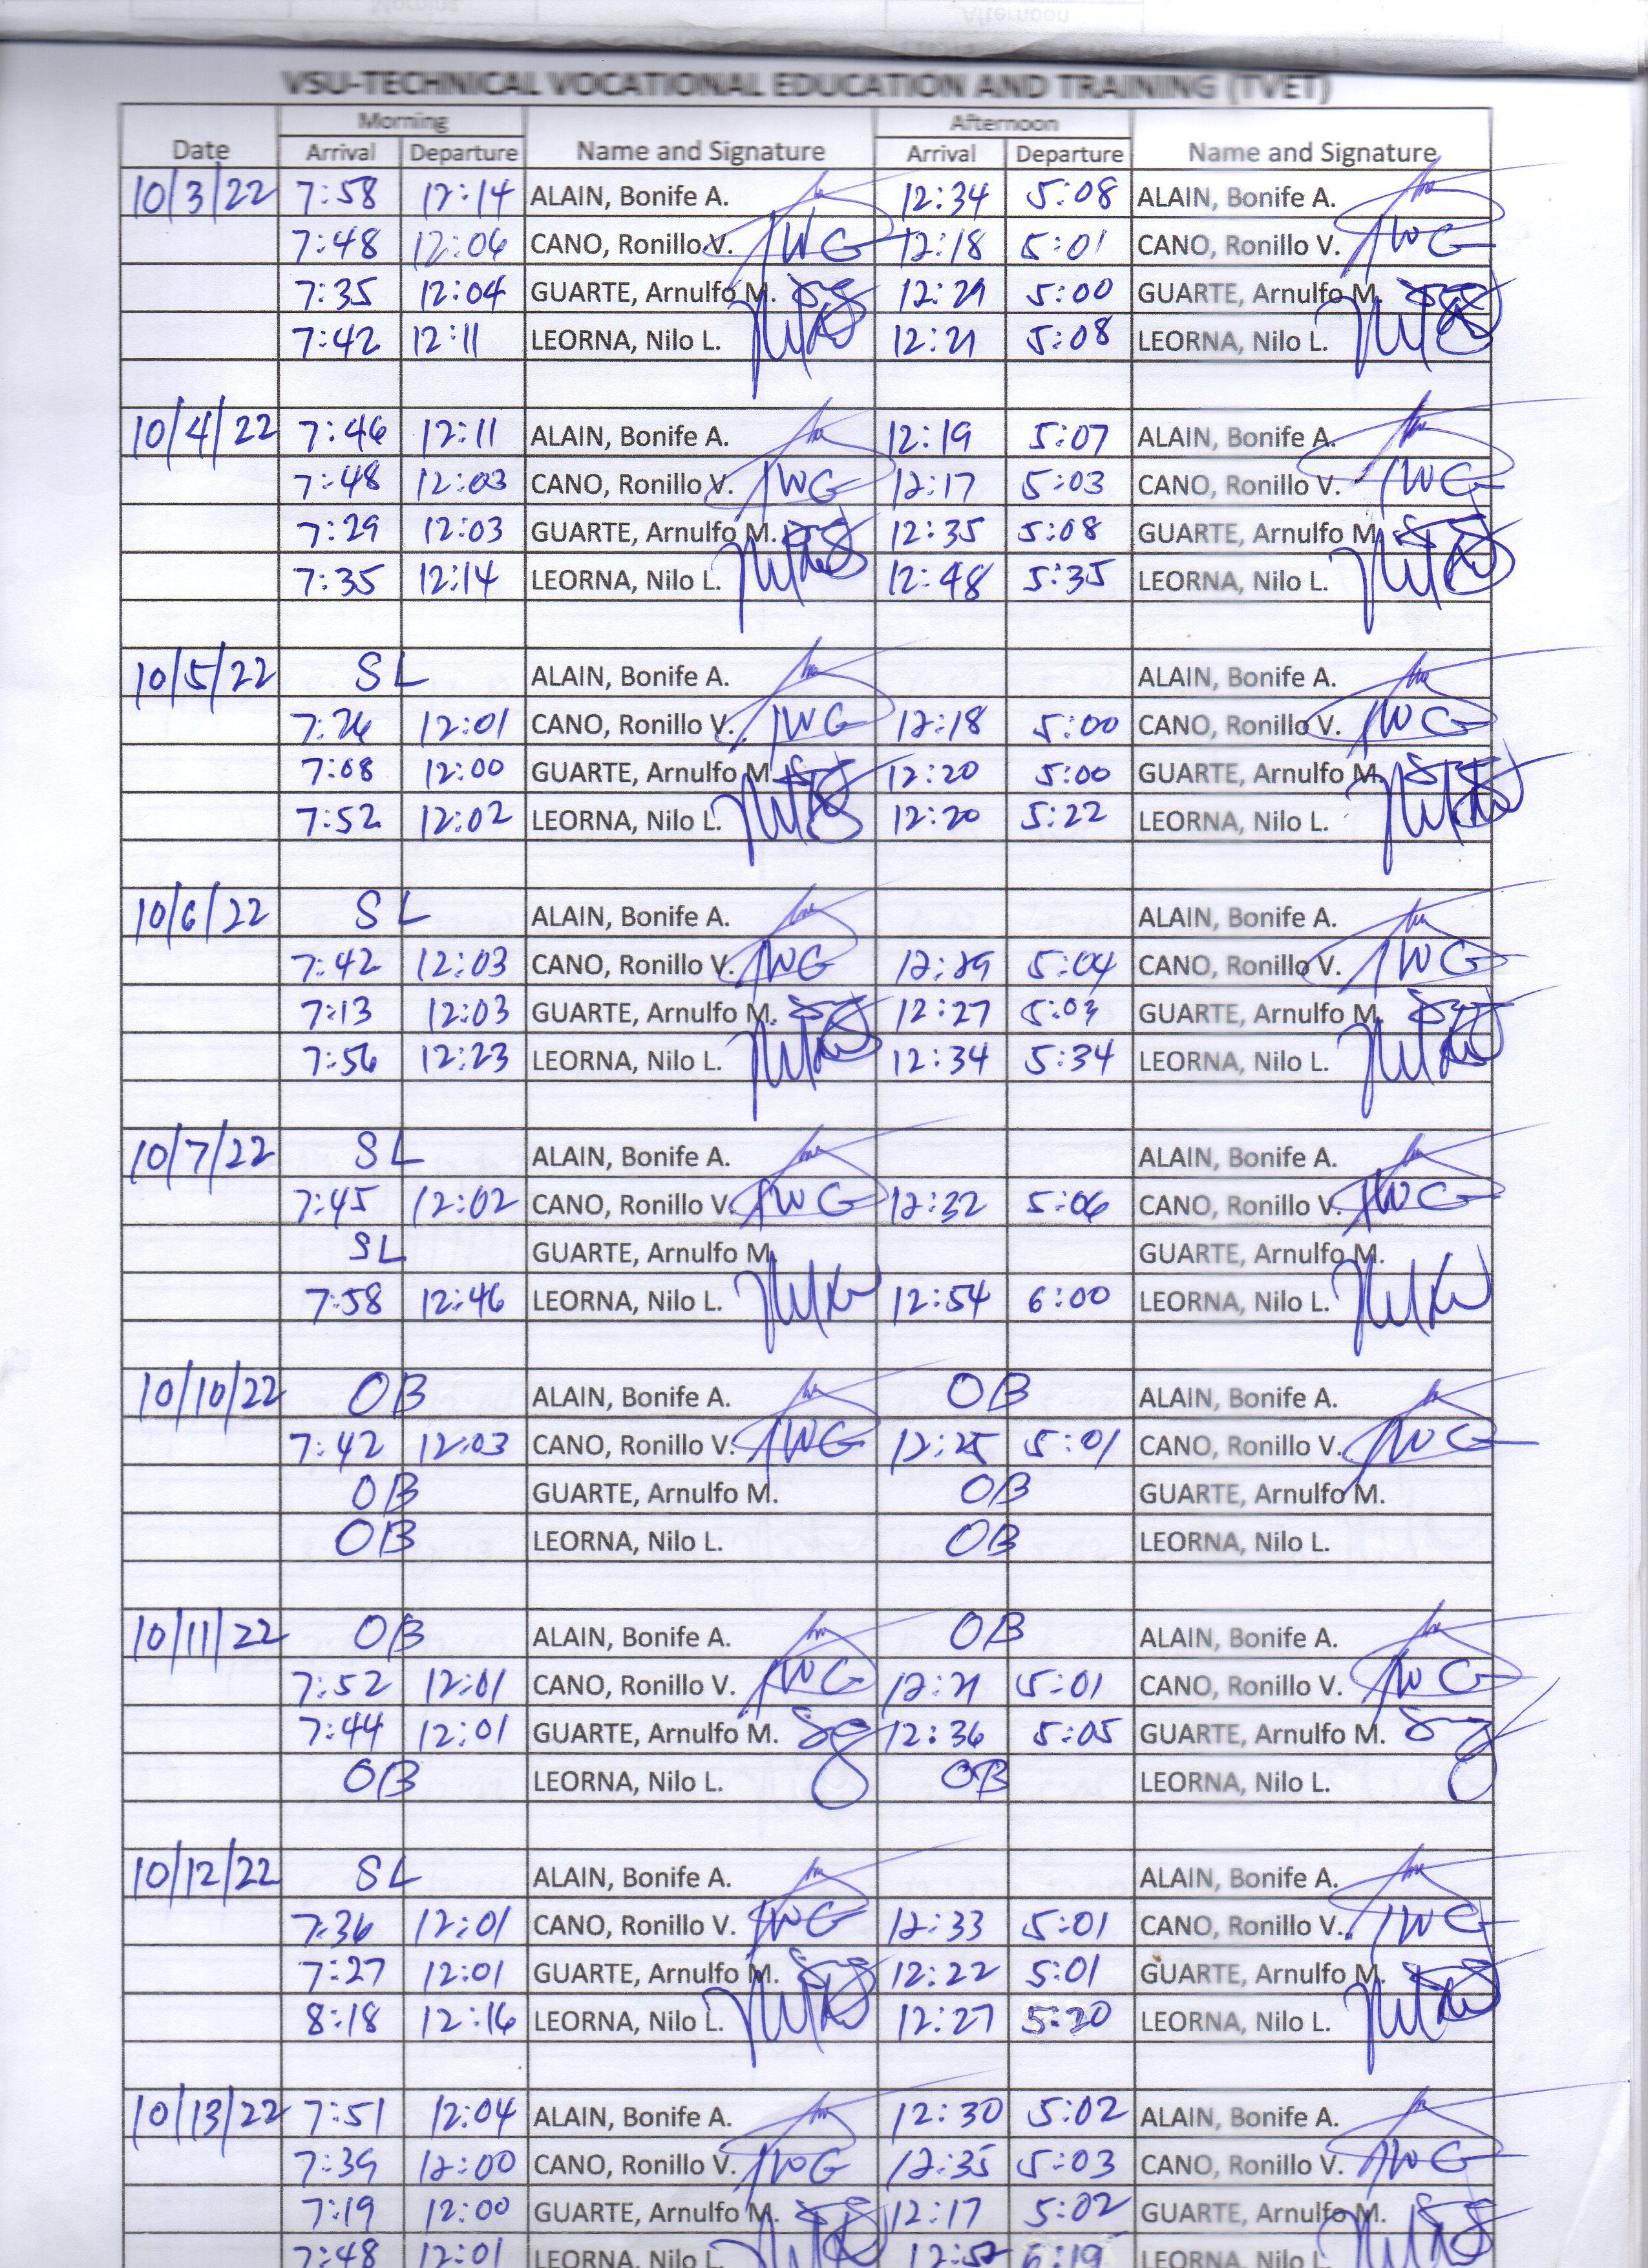 VSU-TECHNICAL VOCATIONAL EDUCATION AND TRAINING (TVET)
Morning Afternoon
Date Arrival Departure Name and Signature Arrival Departure Name and Signature
10/3/22 7:58 12:14 ALAIN, Bonife A. 12:34 5:08 ALAIN, Bonife A.
7:48 12:06 CANO, Ronillo V. 12:18 5:01 CANO, Ronillo V.
7:35 12:04 GUARTE, Arnulfo M. 12:29 5:00 GUARTE, Arnulfo M.
7:42 12:11 LEORNA, Nilo L. 12:21 5:08 LEORNA, Nilo L.
10/4/22 7:46 12:11 ALAIN, Bonife A. 12:19 5:07 ALAIN, Bonife A.
7:48 12:03 CANO, Ronillo V. 12:17 5:03 CANO, Ronillo V.
7:29 12:03 GUARTE, Arnulfo M. 12:35 5:08 GUARTE, Arnulfo M.
7:35 12:14 LEORNA, Nilo L. 12:48 5:35 LEORNA, Nilo L.
10/5/22 SL ALAIN, Bonife A. ALAIN, Bonife A.
12:01 CANO, Ronillo V. 12:18 5:00 CANO, Ronillo V.
7:08 12:00 GUARTE, Arnulfo M. 12:20 5:00 GUARTE, Arnulfo M.
7:52 12:02 LEORNA, Nilo L. 12:20 5:22 LEORNA, Nilo L.
10/6/22 SL ALAIN, Bonife A. ALAIN, Bonife A.
7:42 12:03 CANO, Ronillo V. 12:29 5:04 CANO, Ronillo V.
7:13 12:03 GUARTE, Arnulfo M. 12:27 5:03 GUARTE, Arnulfo M.
7:56 12:23 LEORNA, Nilo L. 12:34 5:34 LEORNA, Nilo L.
10/7/22 SL ALAIN, Bonife A. ALAIN, Bonife A.
7:45 12:02 CANO, Ronillo V. 12:32 5:06 CANO, Ronillo V.
SL GUARTE, Arnulfo M. GUARTE, Arnulfo M.
7:58 12:46 LEORNA, Nilo L. 12:54 6:00 LEORNA, Nilo L.
10/10/22 OB ALAIN, Bonife A. OB ALAIN, Bonife A.
7:42 12:03 CANO, Ronillo V. 12:25 5:01 CANO, Ronillo V.
OB GUARTE, Arnulfo M. OB GUARTE, Arnulfo M.
OB LEORNA, Nilo L. OB LEORNA, Nilo L.
10/11/22 OB ALAIN, Bonife A. OB ALAIN, Bonife A.
7:52 12:01 CANO, Ronillo V. 12:21 5:01 CANO, Ronillo V.
7:44 12:01 GUARTE, Arnulfo M. 12:36 5:05 GUARTE, Arnulfo M.
OB LEORNA, Nilo L. OB LEORNA, Nilo L.
10/12/22 SL ALAIN, Bonife A. ALAIN, Bonife A.
7:36 12:01 CANO, Ronillo V. 12:33 5:01 CANO, Ronillo V.
7:27 12:01 GUARTE, Arnulfo M. 12:22 5:01 GUARTE, Arnulfo M.
8:18 12:16 LEORNA, Nilo L. 12:27 5:20 LEORNA, Nilo L.
10/13/22 7:51 12:04 ALAIN, Bonife A. 12:30 5:02 ALAIN, Bonife A.
7:39 12:00 CANO, Ronillo V. 12:35 5:03 CANO, Ronillo V.
7:19 12:00 GUARTE, Arnulfo M. 12:17 5:02 GUARTE, Arnulfo M.
7:48 12:01 LEORNA, Nilo L. 6:19 LEORNA, Nilo L.